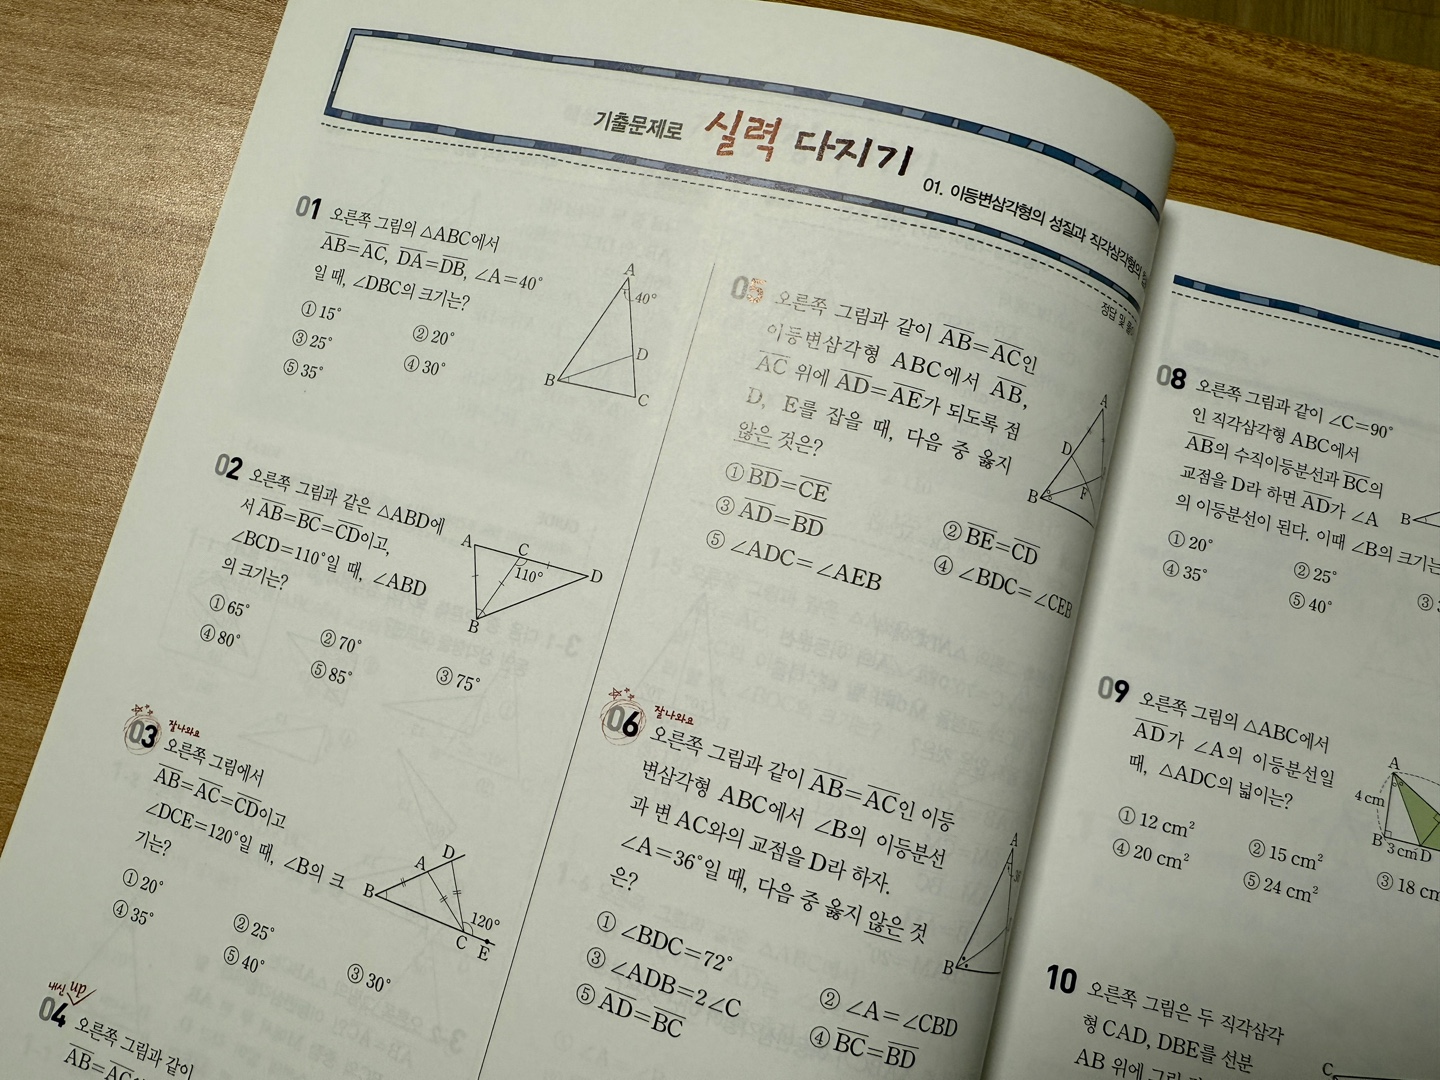 기출문제로 실력 다지기
01. 이등변삼각형의 성질과 직각삼각형의
정답 및
01 오른쪽 그림의 △ABC에서
AB=AC, DA=DB, ∠A=40°
일 때, ∠DBC의 크기는?
① 15° ② 20°
③ 25° ④ 30°
⑤ 35°
A
40°
D
B
C
02 오른쪽 그림과 같은 △ABD에
서 AB=BC=CD이고,
∠BCD=110°일 때, ∠ABD
의 크기는?
① 65° ② 70° ③ 75°
④ 80° ⑤ 85°
A
C
D
110°
B
잘나와요
03 오른쪽 그림에서
AB=AC=CD이고
∠DCE=120°일 때, ∠B의 크
기는?
① 20° ② 25° ③ 30°
④ 35° ⑤ 40°
D
A
B
120°
C
E
내신 up
04 오른쪽 그림과 같이
AB=AC
05 오른쪽 그림과 같이 AB=AC인
이등변삼각형 ABC에서 AB,
AC 위에 AD=AE가 되도록 점
D, E를 잡을 때, 다음 중 옳지
않은 것은?
① BD=CE ② BE=CD
③ AD=BD ④ ∠BDC=∠CEB
⑤ ∠ADC=∠AEB
A
D
B
F
잘나와요
06 오른쪽 그림과 같이 AB=AC인 이등
변삼각형 ABC에서 ∠B의 이등분선
과 변 AC와의 교점을 D라 하자.
∠A=36°일 때, 다음 중 옳지 않은 것
은?
① ∠BDC=72° ② ∠A=∠CBD
③ ∠ADB=2∠C ④ BC=BD
⑤ AD=BC
A
B
08 오른쪽 그림과 같이 ∠C=90°
인 직각삼각형 ABC에서
AB의 수직이등분선과 BC의
교점을 D라 하면 AD가 ∠A
의 이등분선이 된다. 이때 ∠B의 크기는
① 20° ② 25° ③
④ 35° ⑤ 40°
B
09 오른쪽 그림의 △ABC에서
AD가 ∠A의 이등분선일
때, △ADC의 넓이는?
① 12 cm² ② 15 cm² ③ 18 cm
④ 20 cm² ⑤ 24 cm²
A
4 cm
B
3 cm
D
10 오른쪽 그림은 두 직각삼각
형 CAD, DBE를 선분
AB 위에 그린
C